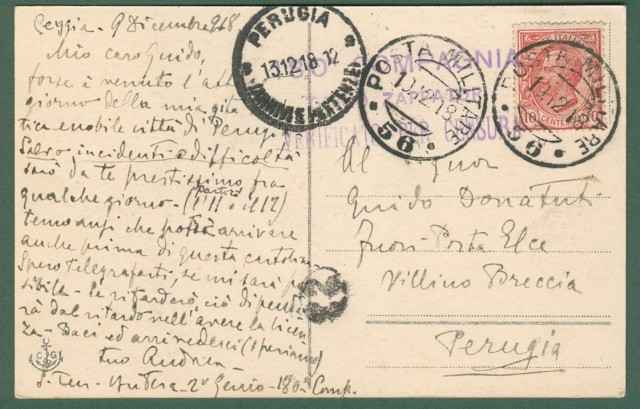 Reggio - 9 Dicembre 918
Mio caro Guido,
forse è venuto l'att
giorno della mia gita
tica e nobile città di Perugi
Salvo incidenti e difficoltà
sarò da te prestissimo fra
qualche giorno - (l'11 o il 12)
partirò
temo anzi che potrò arrivare
anche prima di questa cartolina
Spero telegrafarti, se mi sarà pos
sibile - Se ritarderò, ciò dipende
rà dal ritardo nell'avere la licen
za - Baci ed arrivederci (speriamo)
tuo Andrea
S. Ten. 2° Genio - 180a Comp.
PERUGIA
13.12.18.12
COMPAGNIA
ZAPPATORI
VERIFICATO PER CENSURA
POSTA MILITARE
12.18
56
POSTA MILITARE
10.12.18
56
POSTE ITALIANE
CENTESIMI 10
Al Signor
Guido Donatuti
Fuori Porta Elce
Villino Breccia
Perugia
C G